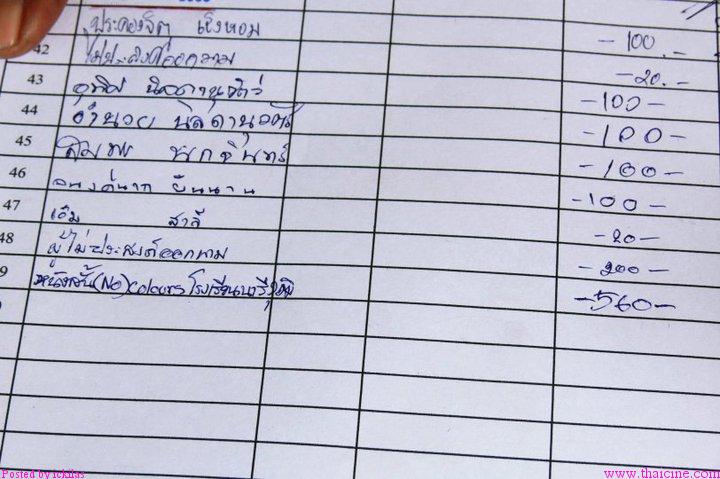 ประคองจิต เชิงหอม -100.-
42 ไม่ประสงค์ออกนาม -20.-
43 อุทิศ -100-
44 อำนวย นิลดานุวัตร์ -100-
45 สมพร -100-
46 -100-
47 เอิม สาลี -20-
48 ผู้ไม่ประสงค์ออกนาม -200-
9 หนังสั้น (No) colours โรงเรียนนารีวุฒิ -560-
Posted by
www.thaicine.com